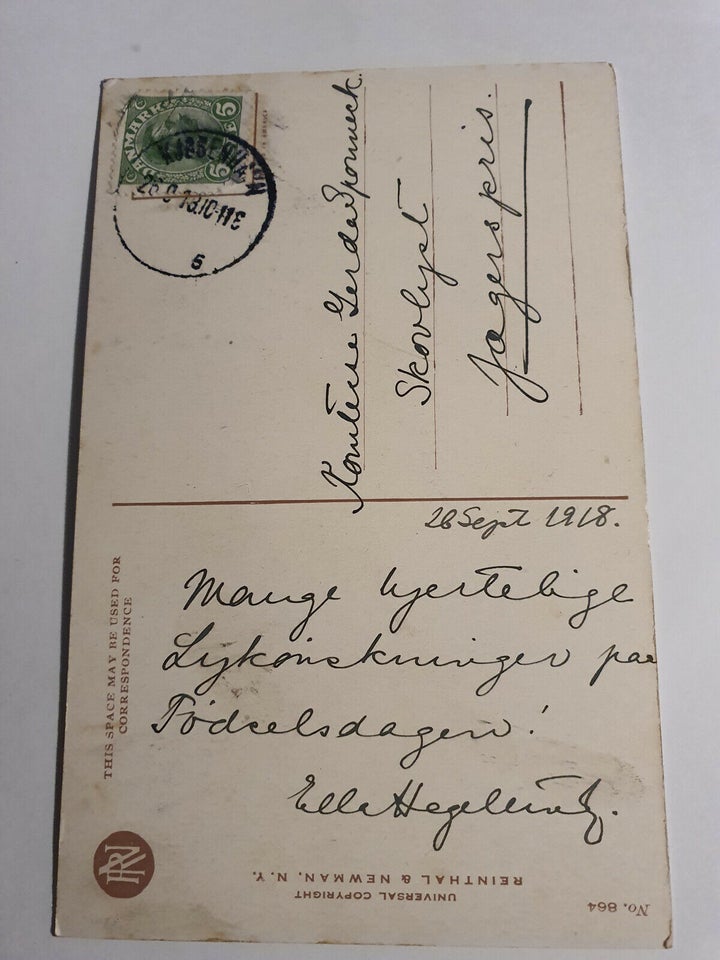 DANMARK
5 5
KJØBENHAVN
26.9.18.10-11E
6
Komtesse Gerda Sponneck.
Skovlyst
Jægerspris.
26 Sept 1918.
Mange hjertelige
Lykønskninger paa
Fødselsdagen!
Ella
THIS SPACE MAY BE USED FOR
CORRESPONDENCE
RN
UNIVERSAL COPYRIGHT
REINTHAL & NEWMAN, N.Y.
No. 864